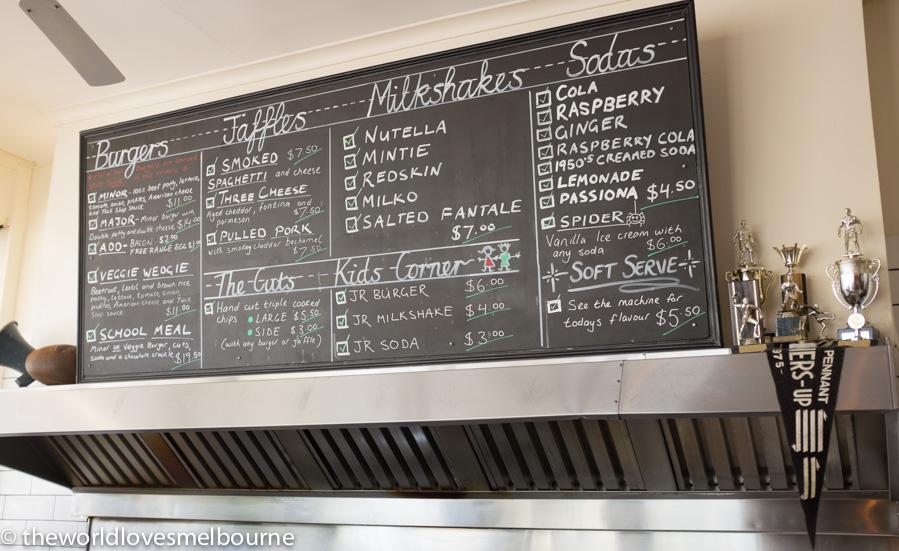 Burgers
MINOR - 100% beef patty, lettuce,
tomato, onion, pickles, American cheese
and Tuck Shop Sauce $11.00
MAJOR - Minor burger with
Double patty and double cheese $14.00
ADD - BACON $2.00
FREE RANGE EGG
VEGGIE WEDGIE
Beetroot, lentil and brown rice
patty, lettuce, tomato, onion,
pickles, American cheese and Tuck
Shop sauce
$11.00
SCHOOL MEAL
Minor or Veggie Burger, cuts,
Soda and a chocolate crackle $19.50
Jaffles
SMOKED $7.50
SPAGHETTI and cheese
THREE CHEESE
Aged cheddar, fontina and
parmesan $7.50
PULLED PORK
with smokey cheddar bechamel
$7.50
The Cuts
Hand cut triple cooked
chips • LARGE $5.50
• SIDE $3.00
(with any burger or jaffle)
Milkshakes
NUTELLA
MINTIE
REDSKIN
MILKO
SALTED FANTALE
$7.00
Kids Corner
JR BURGER $6.00
JR MILKSHAKE $4.00
JR SODA $3.00
Sodas
COLA
RASPBERRY
GINGER
RASPBERRY COLA
1950'S CREAMED SODA
LEMONADE
PASSIONA $4.50
SPIDER
Vanilla Ice cream with
any soda $6.00
SOFT SERVE
See the machine for
todays flavour $5.50
PENNANT
ERS-UP
© theworldlovesmelbourne